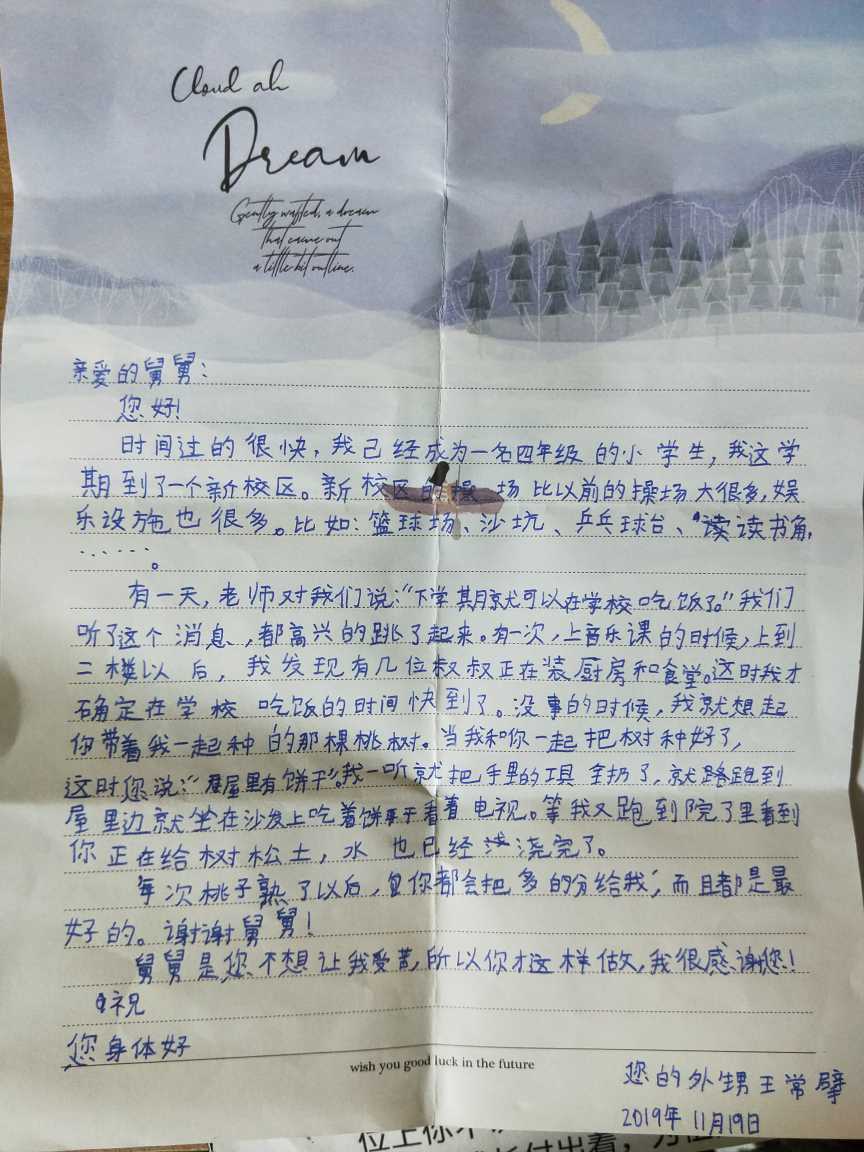 Cloud ah
Dream
Gently wafted, a dream
that came out
a little bit outline.
亲爱的舅舅：
您好！
时间过的很快，我已经成为一名四年级的小学生，我这学
期到了一个新校区。新校区的操场比以前的操场大很多，娱
乐设施也很多。比如：篮球场、沙坑、乒乓球台、读读书角，
……。
有一天，老师对我们说：“下学期就可以在学校吃饭了。”我们
听了这个消息，都高兴的跳了起来。有一次，上音乐课的时候，上到
二楼以后，我发现有几位叔叔正在装厨房和食堂。这时我才
确定在学校吃饭的时间快到了。没事的时候，我就想起
你带着我一起种的那棵桃树。当我和你一起把树种好了，
这时您说：“屋里有饼干”。我一听就把手里的工具全扔了，就路跑到
屋里边就坐在沙发上吃着饼干看着电视。等我又跑到院了里看到
你正在给树松土，水也已经浇完了。
每次桃子熟了以后，你都会把多的分给我，而且都是最
好的。谢谢舅舅！
舅舅是您不想让我受苦，所以你才这样做，我很感谢您！
祝
您身体好
wish you good luck in the future
您的外甥王常擘
2019年11月19日
位上你不